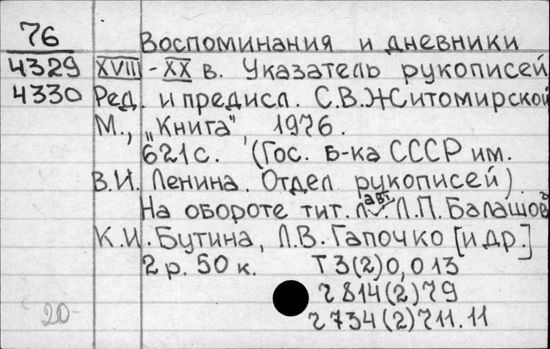 76
4329
4330
Воспоминания и дневники
XVIII - XX в. Указатель рукописей
Ред. и предисл. С.В.Житомирской
М., „Книга", 1976.
621 с. (Гос. б-ка СССР им.
В.И. Ленина. Отдел рукописей)
На обороте тит. л. авт. Л.П. Балашов
К.И. Бутина, Л.В. Гапочко [и др.]
2 р. 50 к. Т3(2)0,013
Ч814(2)79
Ч734(2)711.11
20-